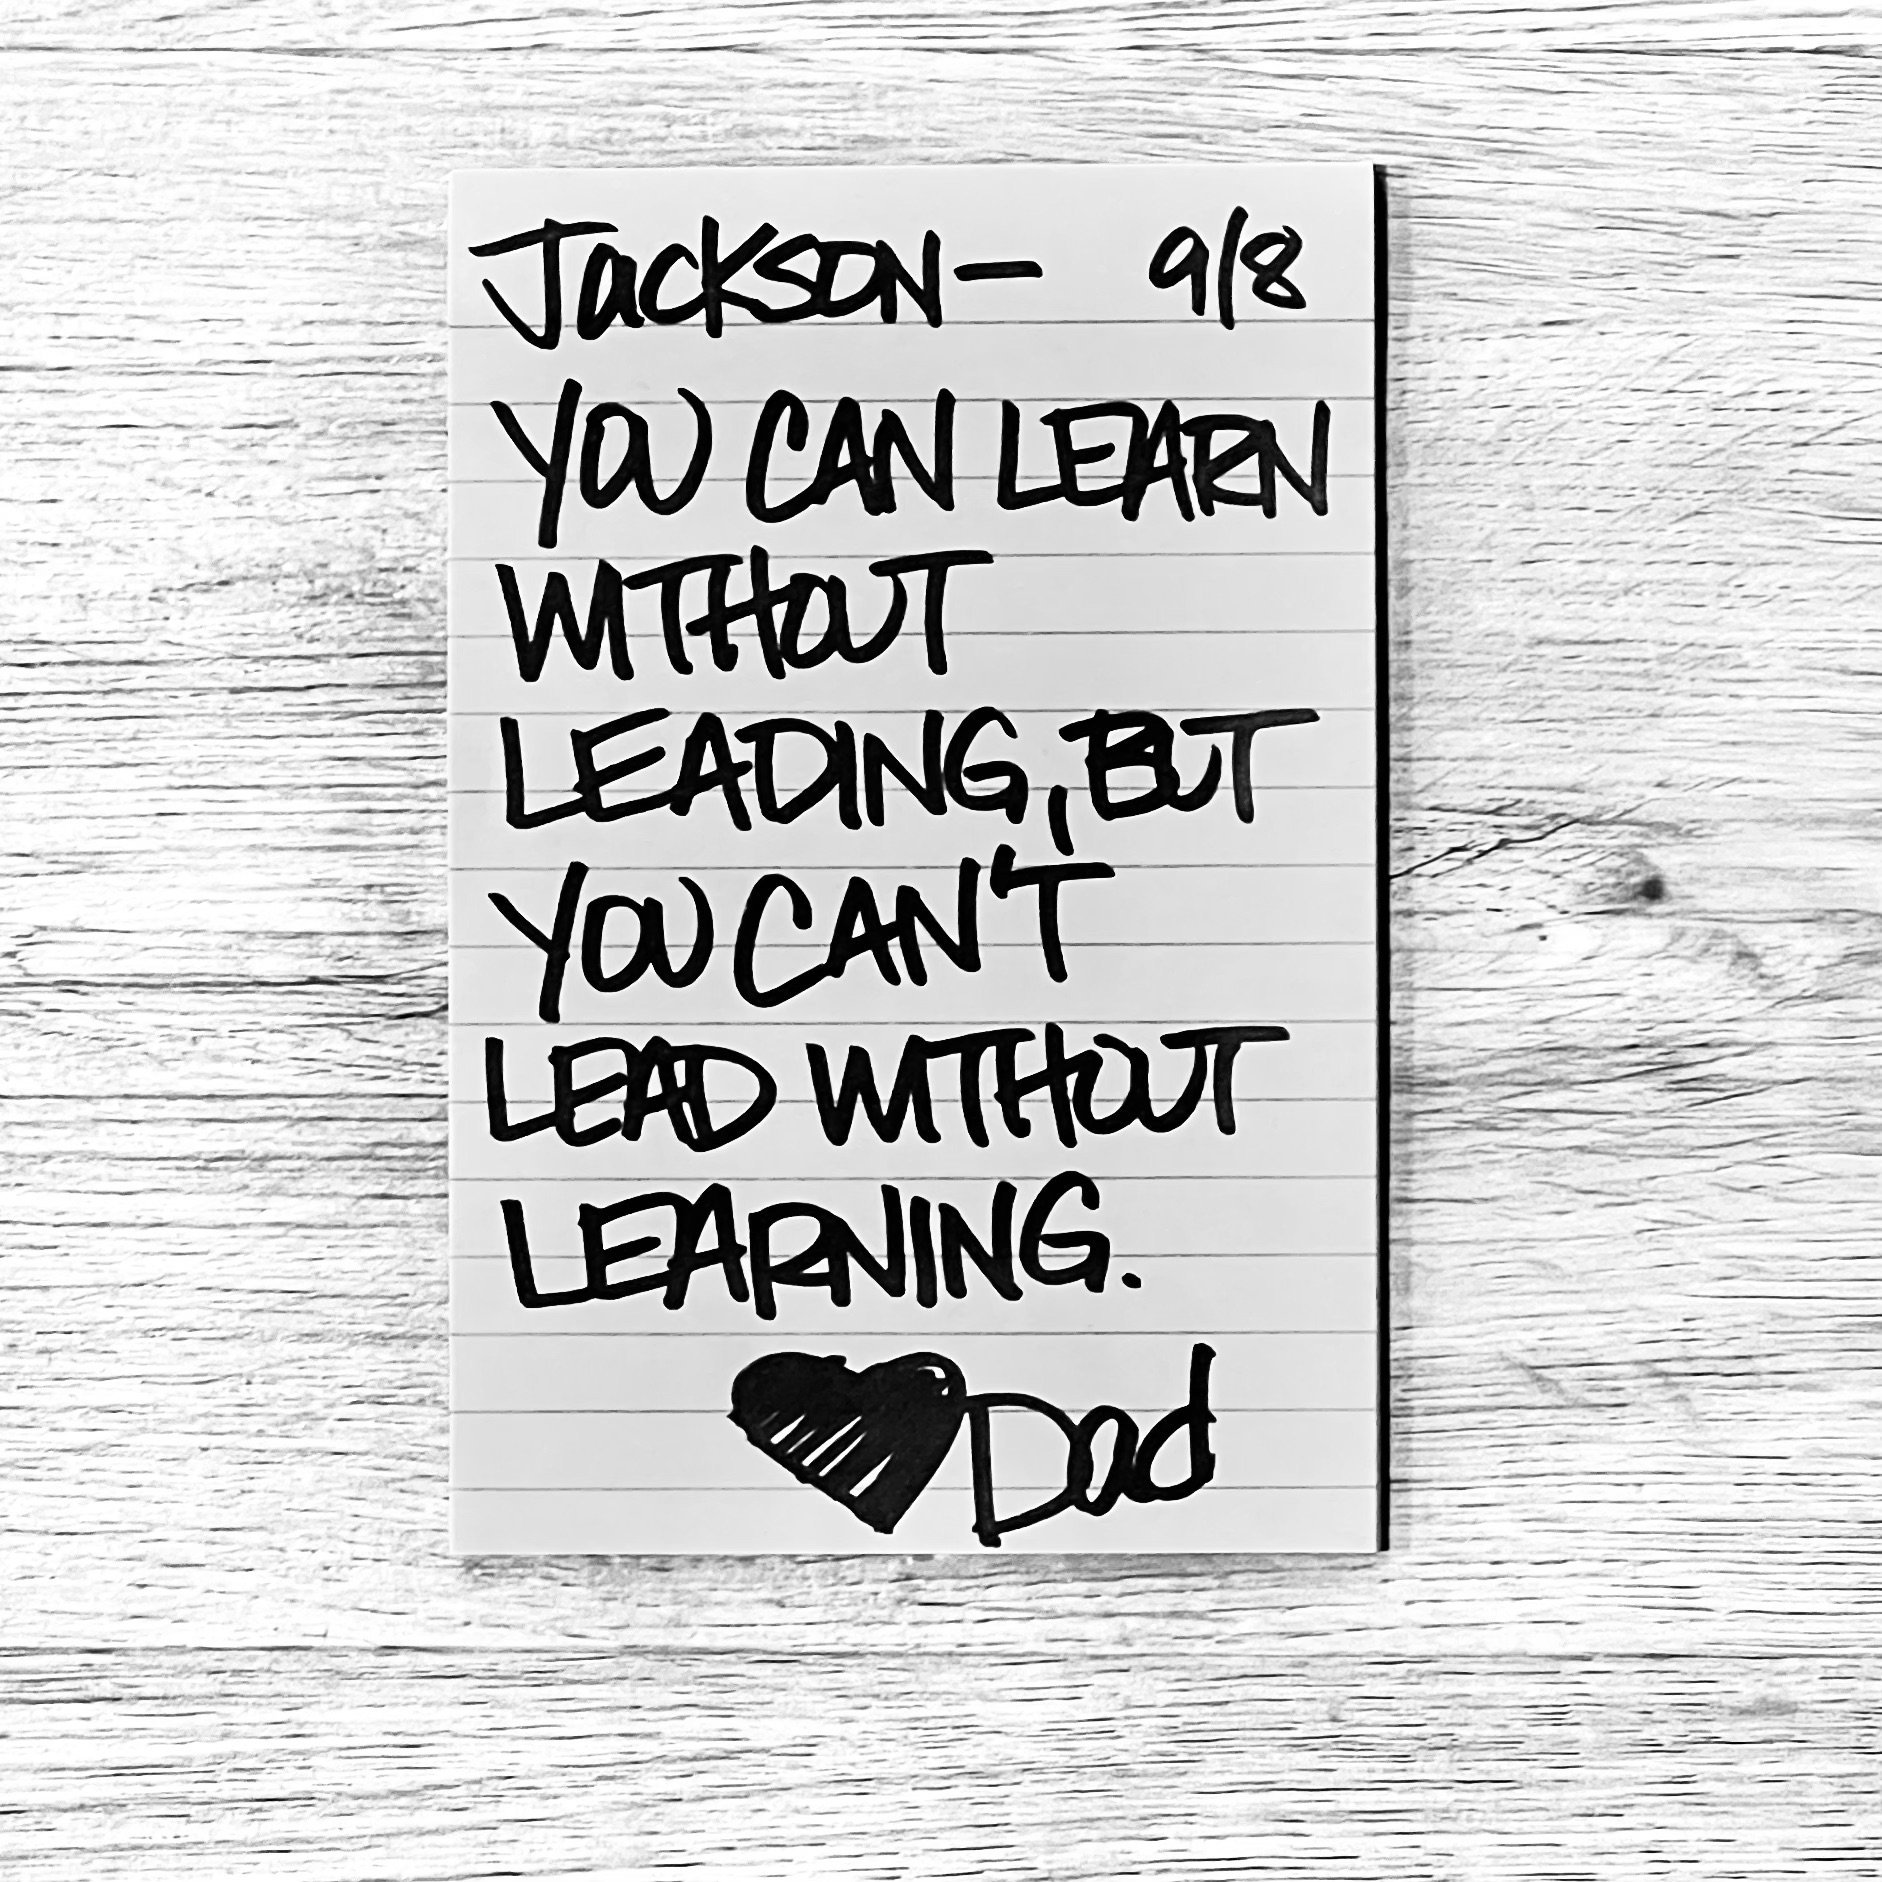 Jackson— 9/8
YOU CAN LEARN
WITHOUT
LEADING, BUT
YOU CAN'T
LEAD WITHOUT
LEARNING.
♥ Dad